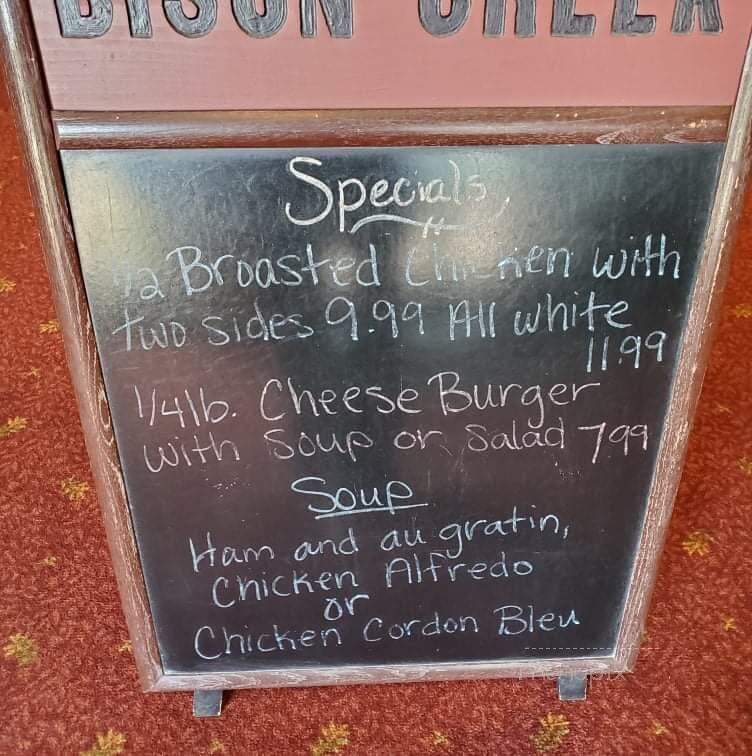 BISON CREEK
Specials
1/2 Broasted Chicken with
two sides 9.99 All white
11.99
1/4 lb. Cheese Burger
with Soup or Salad 7.99
Soup
Ham and au gratin,
Chicken Alfredo
or
Chicken Cordon Bleu